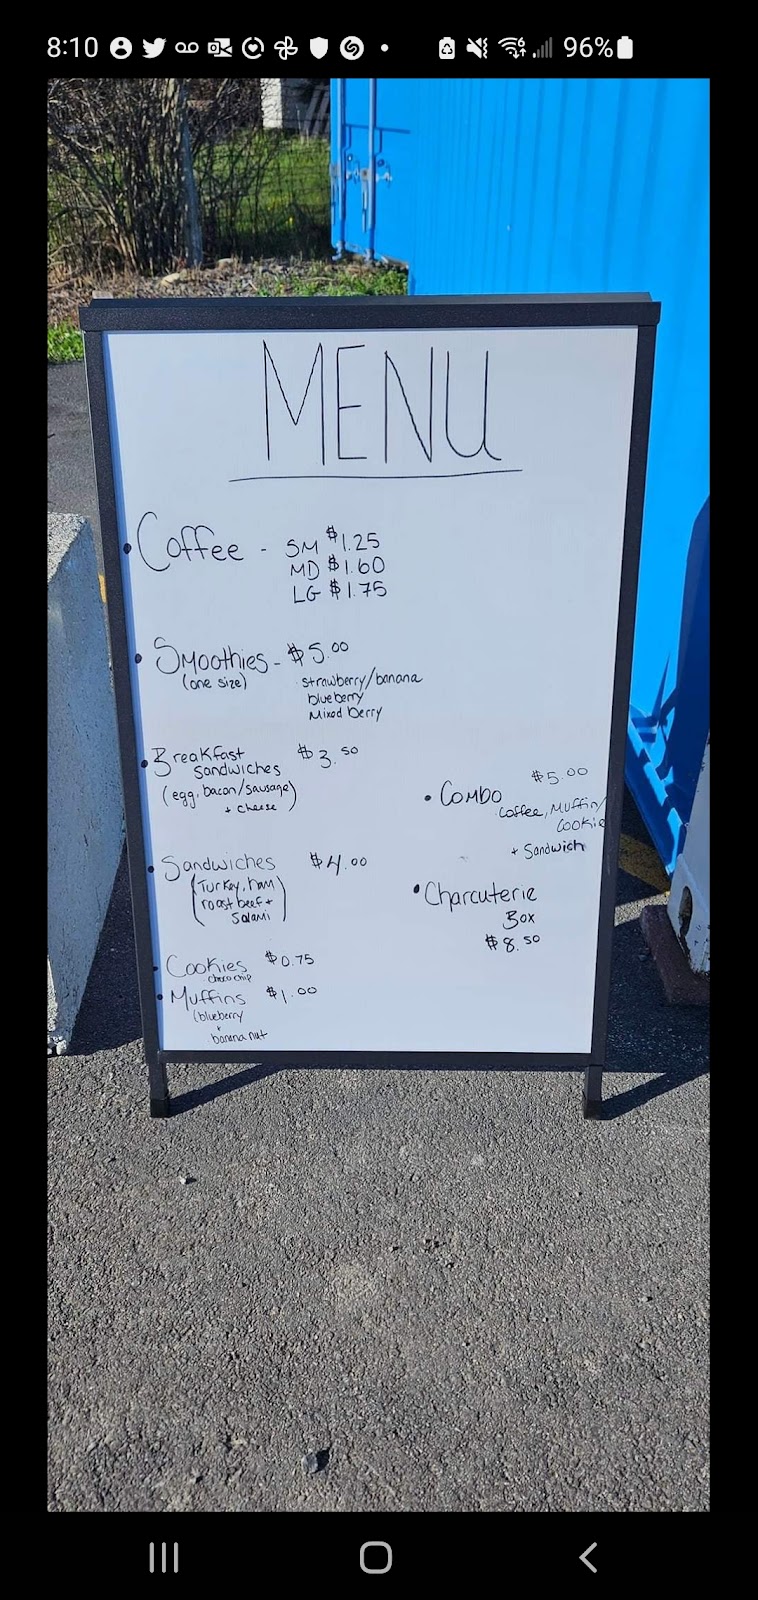 8:10
96%
MENU
Coffee - SM $1.25
MD $1.60
LG $1.75
Smoothies - $5.00
(one size) strawberry/banana
blueberry
Mixed berry
Breakfast $3.50
Sandwiches
(egg, bacon/sausage)
+ cheese
Sandwiches $4.00
(Turkey, ham
roast beef +
Salami)
Cookies $0.75
choco chip
Muffins $1.00
(blueberry
+
banana nut
$5.00
Combo
Coffee, Muffin/
Cookie
+ Sandwich
Charcuterie
Box
$8.50